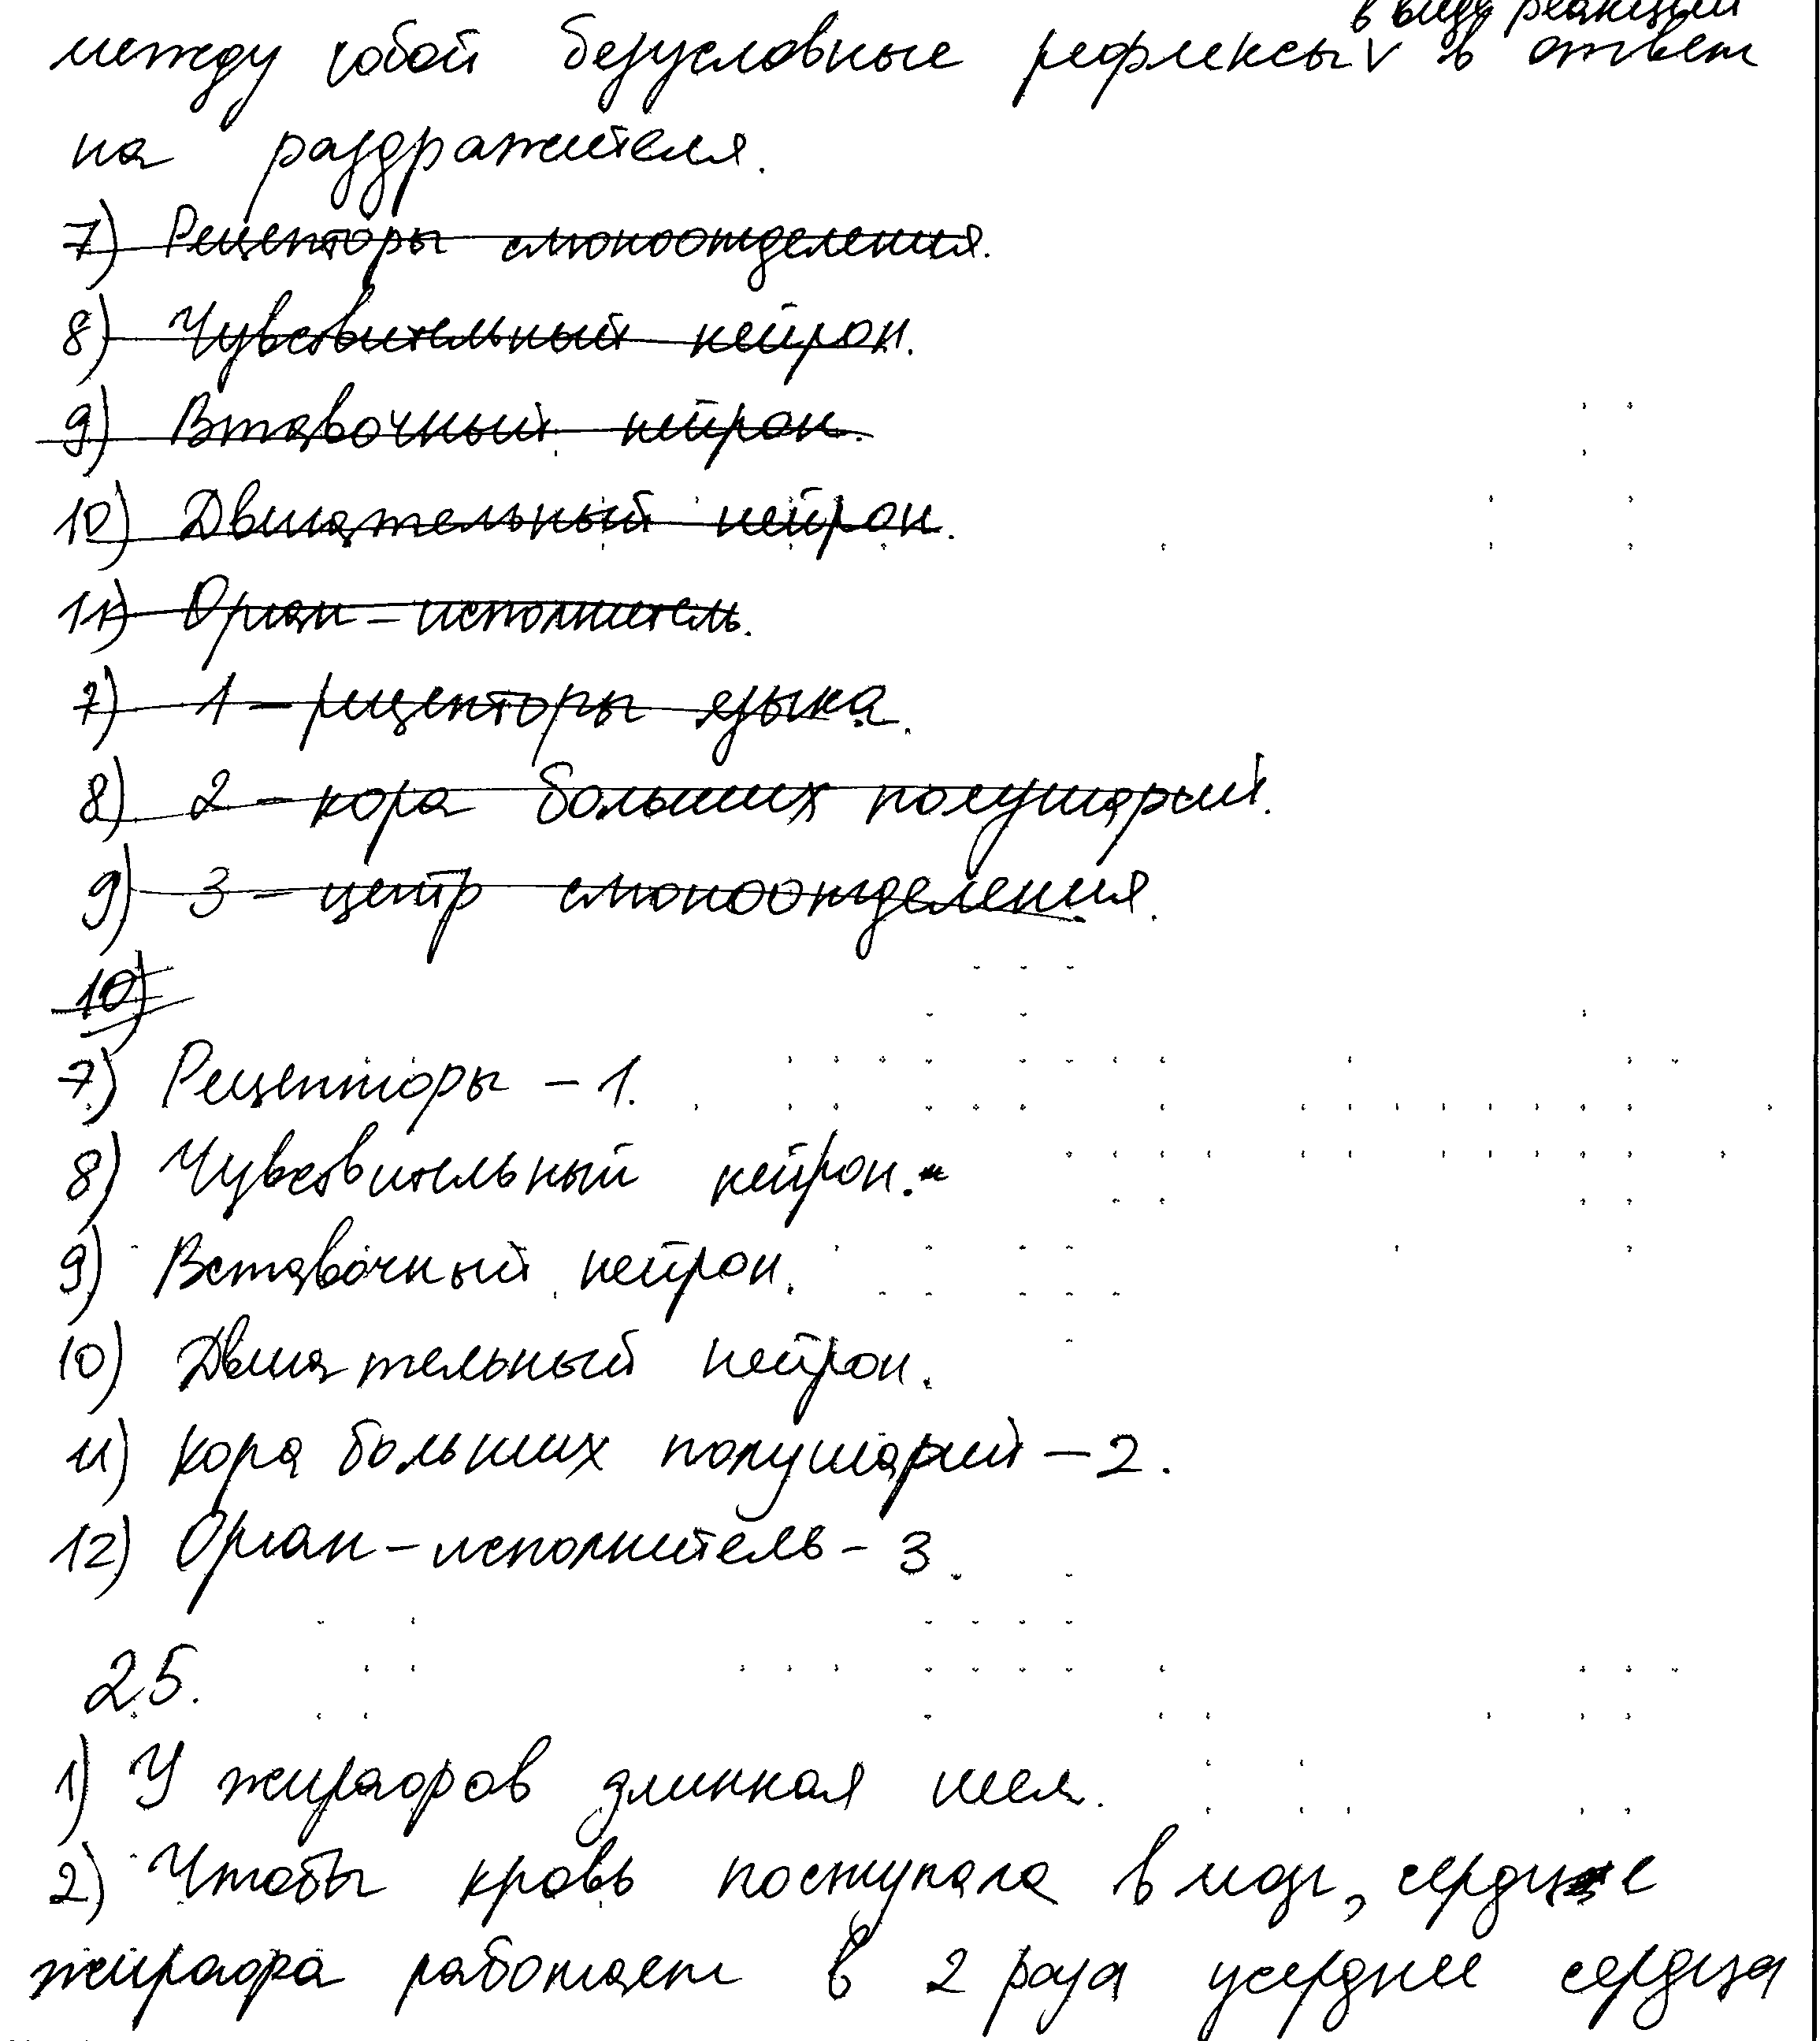 в виде реакции
между собой безусловные рефлексы v в ответ
на раздражителя.
7) Рецепторы слюноотделения.
8) Чувствительный нейрон.
9) Втавочный нейрон.
10) Двигательный нейрон.
11) Орган-исполнитель.
7) 1 - рецепторы языка.
8) 2 - кора больших полушарий.
9) 3 - центр слюноотделения.
10)
7) Рецепторы - 1.
8) Чувствительный нейрон.
9) Вставочный нейрон.
10) Двигательный нейрон.
11) Кора больших полушарий - 2.
12) Орган-исполнитель - 3.
25.
1) У жирафов длинная шея.
2) Чтобы кровь поступала в мозг, сердце
жирафа работает в 2 раза усерднее сердца